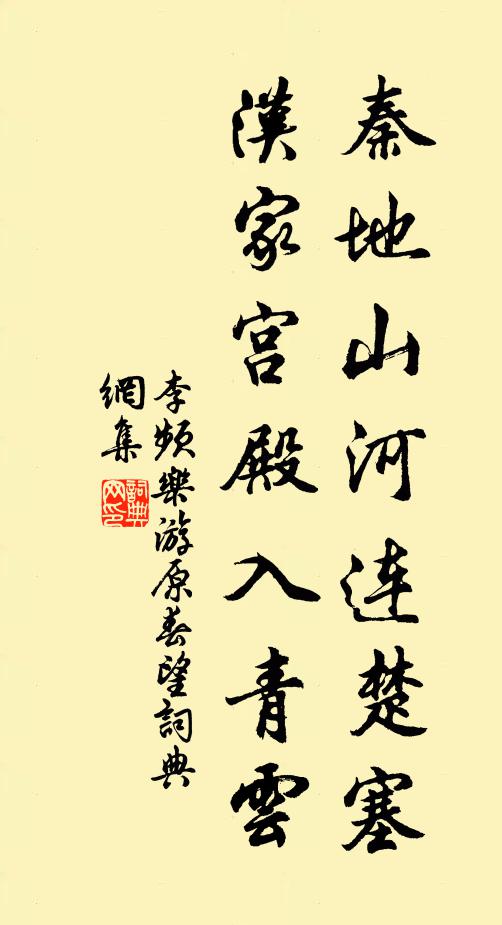 秦地山河连楚塞
漢家宫殿入青雲
李频樂游原春望詞典
網集
詞典
网印